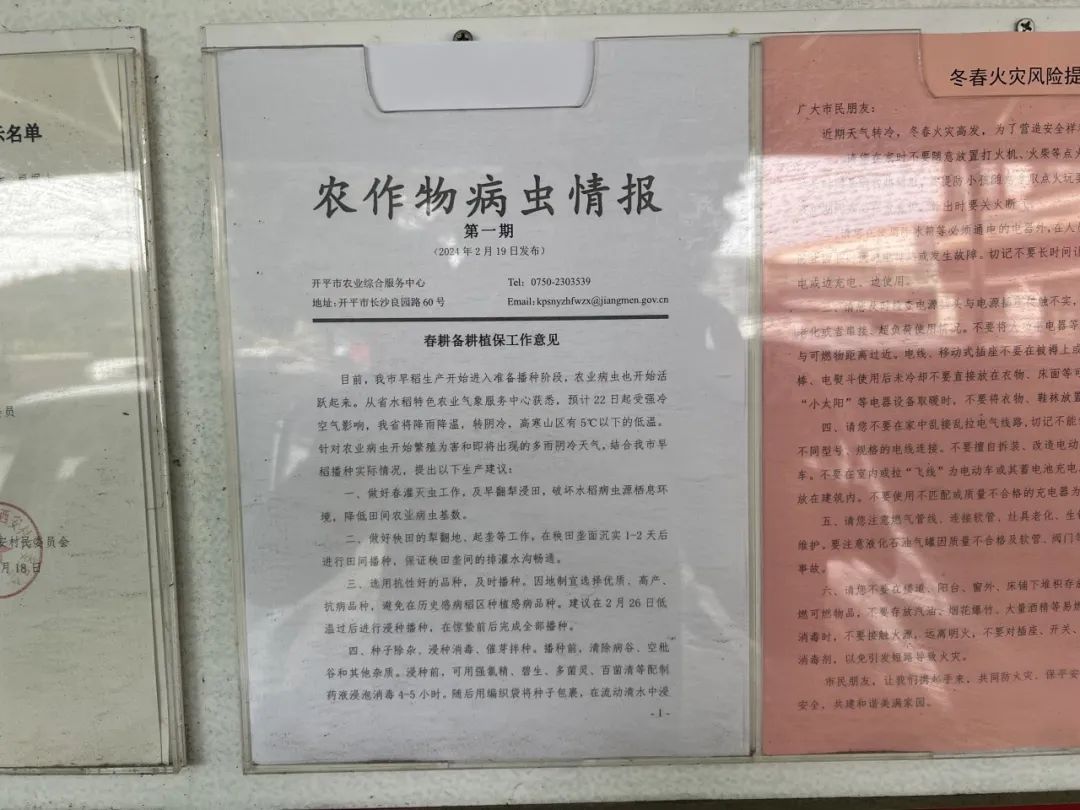 示名单
委员
安村民委员会
月18日
农作物病虫情报
第一期
（2024年2月19日发布）
开平市农业综合服务中心 Tel：0750-2303539
地址：开平市长沙良园路60号 Email：kpsnyzhfwzx@jiangmen.gov.cn
春耕备耕植保工作意见
目前，我市早稻生产开始进入准备播种阶段，农业病虫也开始活
跃起来。从省水稻特色农业气象服务中心获悉，预计22日起受强冷
空气影响，我省将降雨降温，转阴冷，高寒山区有5℃以下的低温。
针对农业病虫开始繁殖为害和即将出现的多雨阴冷天气，结合我市早
稻播种实际情况，提出以下生产建议：
一、做好春灌灭虫工作，及早翻犁浸田，破坏水稻病虫源栖息环
境，降低田间农业病虫基数。
二、做好秧田的犁翻地、起垄等工作，在秧田垄面沉实1-2天后
进行田间播种，保证秧田垄间的排灌水沟畅通。
三、选用抗性好的品种，及时播种。因地制宜选择优质、高产、
抗病品种，避免在历史感病稻区种植感病品种。建议在2月26日低
温过后进行浸种播种，在惊蛰前后完成全部播种。
四、种子除杂、浸种消毒、催芽拌种。播种前，清除病谷、空秕
谷和其他杂质。浸种前，可用强氯精、碧生、多菌灵、百菌清等配制
药液浸泡消毒4-5小时。随后用编织袋将种子包裹，在流动清水中浸
-1-
冬春火灾风险提
广大市民朋友：
近期天气转冷，冬春火灾高发，为了营造安全祥
请您在家时不要随意放置打火机、火柴等点火
谨防小孩随意拿取点火玩
出时要关火断气
水箱等必须通电的电器外，在人
或发生故障。切记不要长时间让
电或边充电、边使用。
电源插头与电源插座接触不实，
老化或者串接、超负荷使用情况。不要将大功率电器等
与可燃物距离过近。电线、移动式插座不要在被褥上或
棒、电熨斗使用后未冷却不要直接放在衣物、床面等可
“小太阳”等电器设备取暖时，不要将衣物、鞋袜放置
四、请您不要在家中乱接乱拉电气线路，切记不能
不同型号、规格的电线连接。不要擅自拆装、改造电动
车。不要在室内或拉“飞线”为电动车或其蓄电池充电
放在建筑内。不要使用不匹配或质量不合格的充电器为
五、请您注意燃气管线、连接软管、灶具老化、生锈
维护。要注意液化石油气罐因质量不合格及软管、阀门等
事故。
六、请您不要在楼道、阳台、窗外、床铺下堆积存放
燃可燃物品，不要存放汽油、烟花爆竹、大量酒精等易燃
消毒时，不要接触火源，远离明火，不要对插座、开关、
消毒剂，以免引发短路导致火灾。
市民朋友，让我们携起手来，共同防火灾、保平安
安全，共建和谐美满家园。